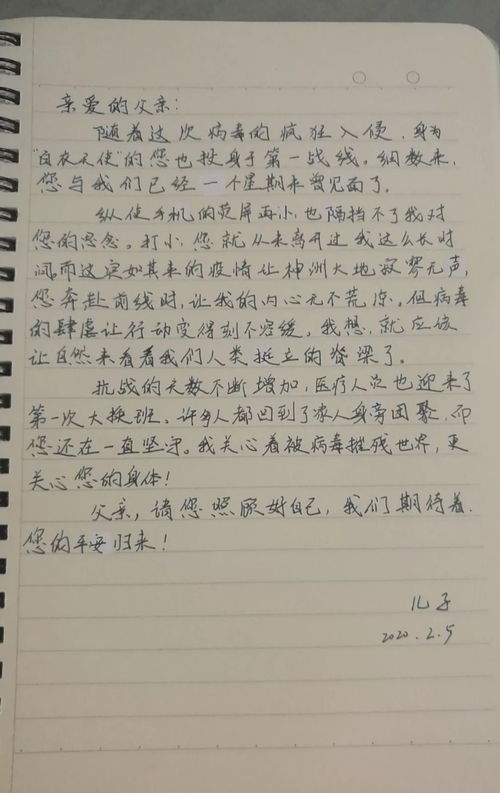 亲爱的父亲:
随着这次病毒的疯狂入侵,身为
“白衣天使”的您也投身于第一战线。细数来,
您与我们已经一个星期未曾见面了。
纵使手机的荧屏再小,也隔挡不了我对
您的思念。打小,您就从未离开过我这么长时
间,而这突如其来的疫情让神洲大地寂寥无声,
您奔赴前线时,让我的内心无不荒凉。但病毒
的肆虐让行动变得刻不容缓,我想,就应该
让自然来看看我们人类挺立的脊梁了。
抗战的天数不断增加,医疗人员也迎来了
第一次大换班。许多人都回到了家人身旁团聚,而
您还在一直坚守。我关心着被病毒摧残世界,更
关心您的身体!
父亲,请您照顾好自己,我们期待着
您的平安归来!
儿子
2020.2.5